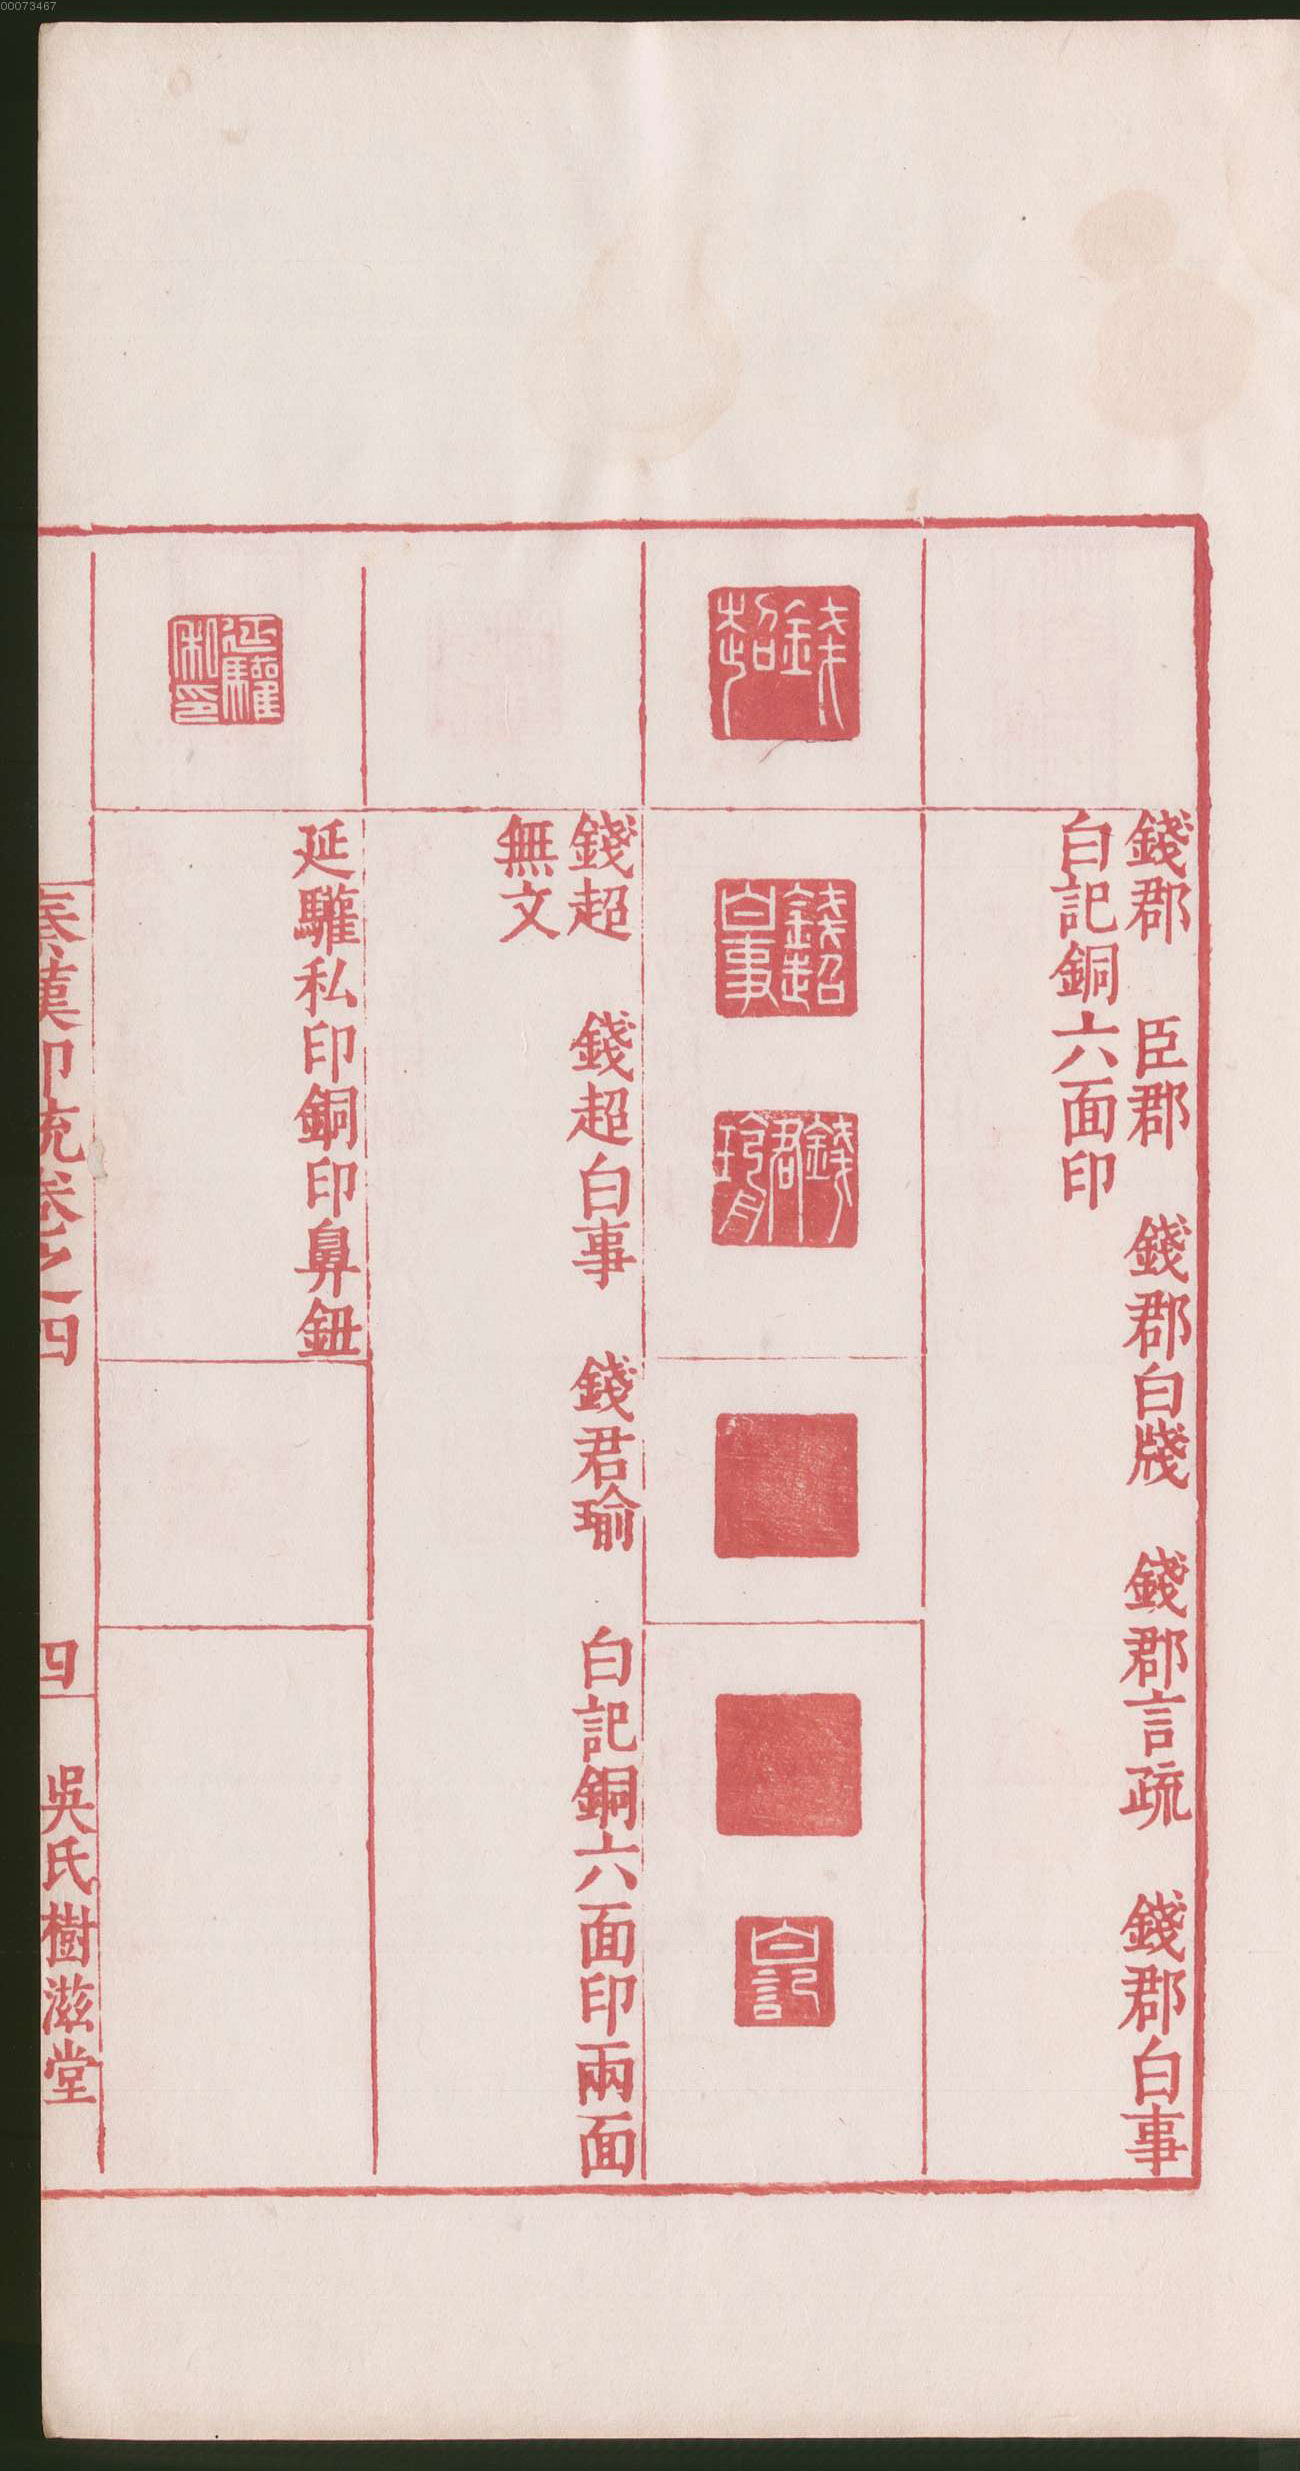 00073467
錢郡　臣郡　錢郡白牋　錢郡言疏　錢郡白事
白記銅六面印
錢超
錢超白事
錢君瑜
白記
錢超　錢超白事　錢君瑜　白記銅六面印兩面
無文
延驩私印
延驩私印銅印鼻鈕
秦漢印統卷之四　四　吳氏樹滋堂